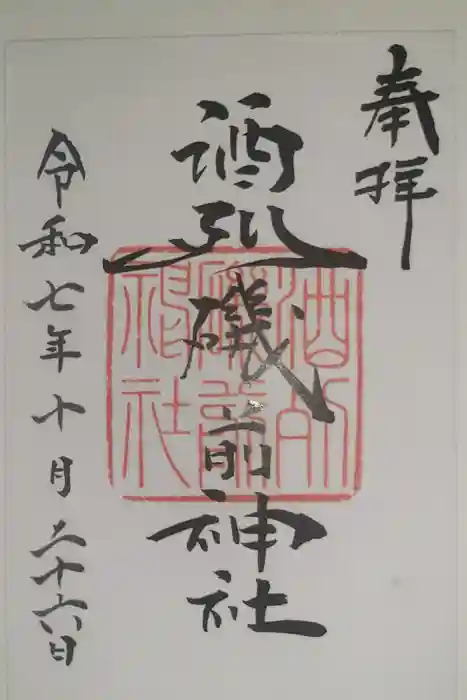 奉拝
酒列磯前神社
酒列
磯前
神社
令和七年十月二十六日